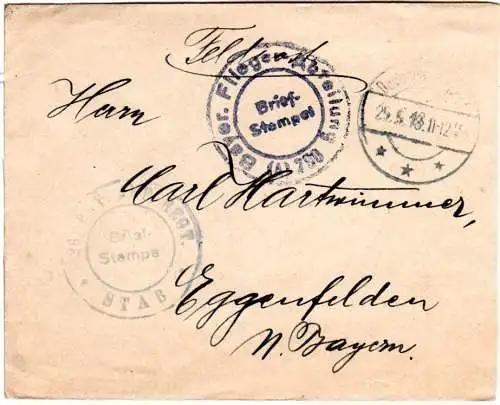 Bayer. Flieger Abteilung (A) 290
Brief-
Stempel
25.5.18.11-12
Herrn
Carl Hartwimmer,
Brief-
Stempel
STAB
Eggenfelden
N. Bayern.